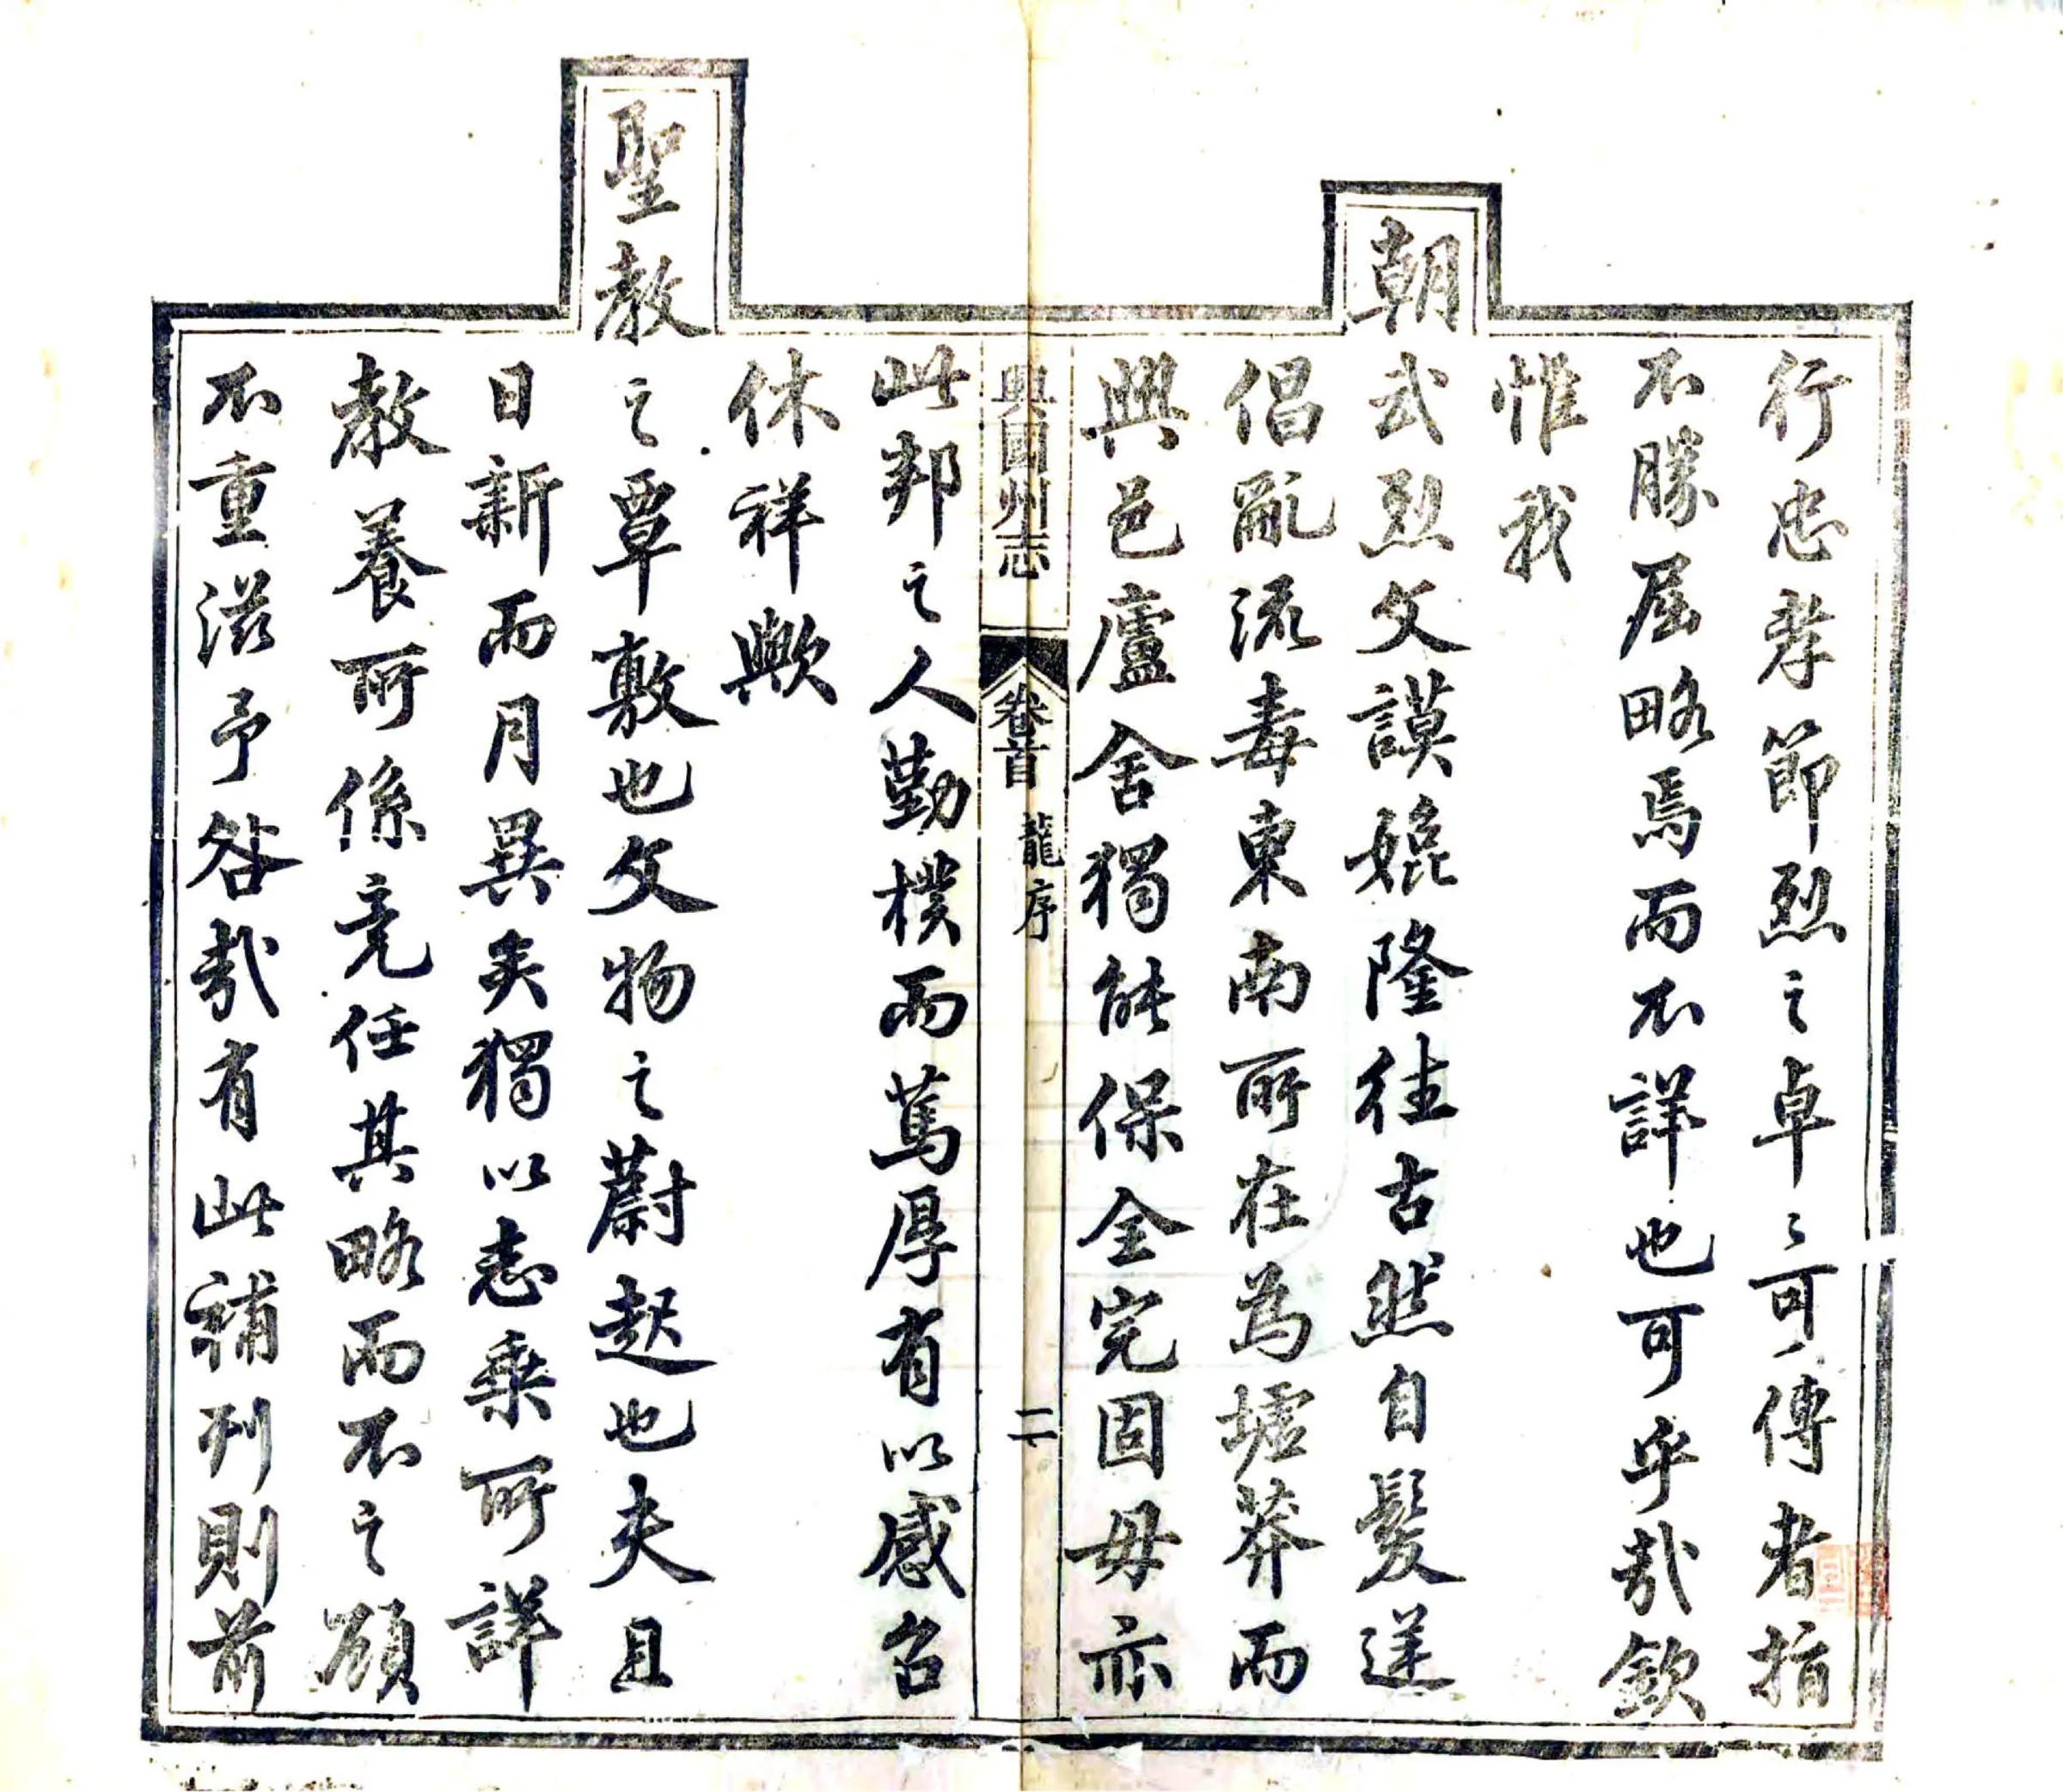 行忠孝節烈之卓〻可傳者指
不勝屈略焉而不詳也可乎哉欽
惟我
朝武烈文謨媲隆往古然自髮逆
倡亂流毒東南所在為墟莽而
興邑廬舍獨能保全完固毋亦
興國州志 卷首 龍序 二
此邦之人勤樸而篤厚有以感召
休祥歟
聖教之覃敷也文物之蔚起也夫且
日新而月異矣獨以志乘所詳
教養所係竟任其略而不之顧
不重滋予咎哉有此補刊則前